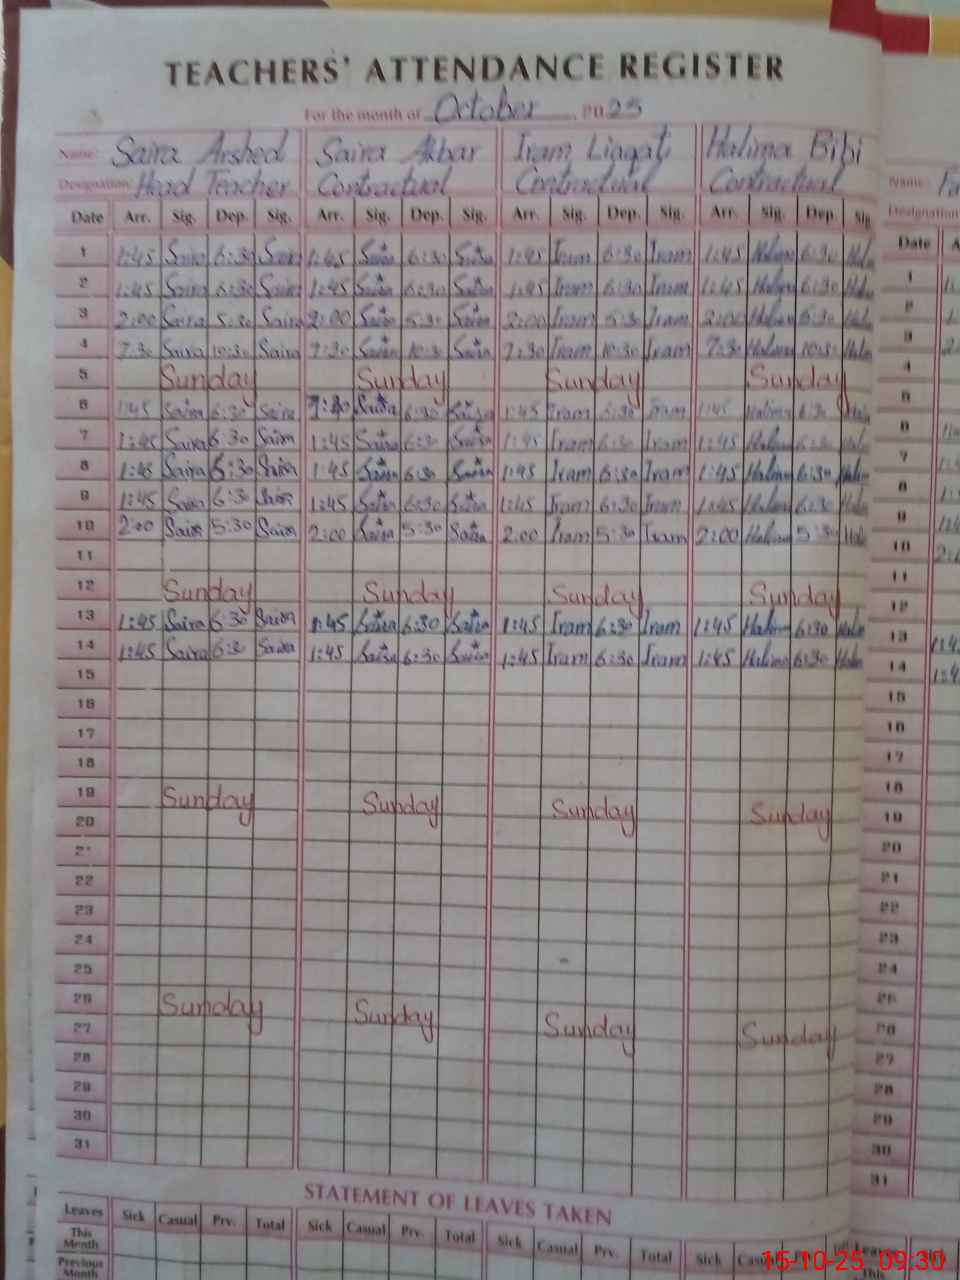 TEACHERS' ATTENDANCE REGISTER
For the month of October 2025
Name: Saira Arshed Saira Akbar Iram Liaqat Halima Bibi Name:
Designation Head Teacher Contractual Contractual Contractual Designation
Date Arr. Sig. Dep. Sig. Arr. Sig. Dep. Sig. Arr. Sig. Dep. Sig. Arr. Sig. Dep. Sig Date
1 1:45 Saira 6:30 Saira 1:45 Saira 6:30 Saira 1:45 Iram 6:30 Iram 1:45 Halima 6:30 1
2 1:45 Saira 6:30 Saira 1:45 Saira 6:30 Saira 1:45 Iram 6:30 Iram 1:45 Halima 6:30 2
3 2:00 Saira 5:30 Saira 2:00 Saira 5:30 Saira 2:00 Iram 5:30 Iram 2:00 Halima 5:30 3
4 7:30 Saira 10:30 Saira 7:30 Saira 10:30 Saira 7:30 Iram 10:30 Iram 7:30 Halima 10:30 4
5 Sunday Sunday Sunday Sunday 5
6 1:45 Saira 6:30 Saira Saira 6:30 Saira 1:45 Iram 6:30 Iram 1:45 Halima 6:30 6
7 1:45 Saira 6:30 Saira 1:45 Saira 6:30 Saira 1:45 Iram 6:30 Iram 1:45 Halima 6:30 7
8 1:45 Saira 6:30 Saira 1:45 Saira 6:30 Saira 1:45 Iram 6:30 Iram 1:45 Halima 6:30 8
9 1:45 Saira 6:30 Saira 1:45 Saira 6:30 Saira 1:45 Iram 6:30 Iram 1:45 Halima 6:30 9
10 2:00 Saira 5:30 Saira 2:00 Saira 5:30 Saira 2:00 Iram 5:30 Iram 2:00 Halima 5:30 10
11 11
12 Sunday Sunday Sunday Sunday 12
13 1:45 Saira 6:30 Saira 1:45 Saira 6:30 Saira 1:45 Iram 6:30 Iram 1:45 Halima 6:30 13
14 1:45 Saira 6:30 Saira 1:45 Saira 6:30 Saira 1:45 Iram 6:30 Iram 1:45 Halima 6:30 14
15 15
16 16
17 17
18 18
19 Sunday Sunday Sunday Sunday 19
20 20
21 21
22 22
23 23
24 24
25
26 Sunday Sunday Sunday Sunday 26
27 27
28 28
29 29
30 30
31 31
STATEMENT OF LEAVES TAKEN
Leaves Sick Casual Prv. Total Sick Casual Prv. Total Sick Casual Prv. Total Sick Leaves
This Month This
Previous Month
15-10-25 09:30